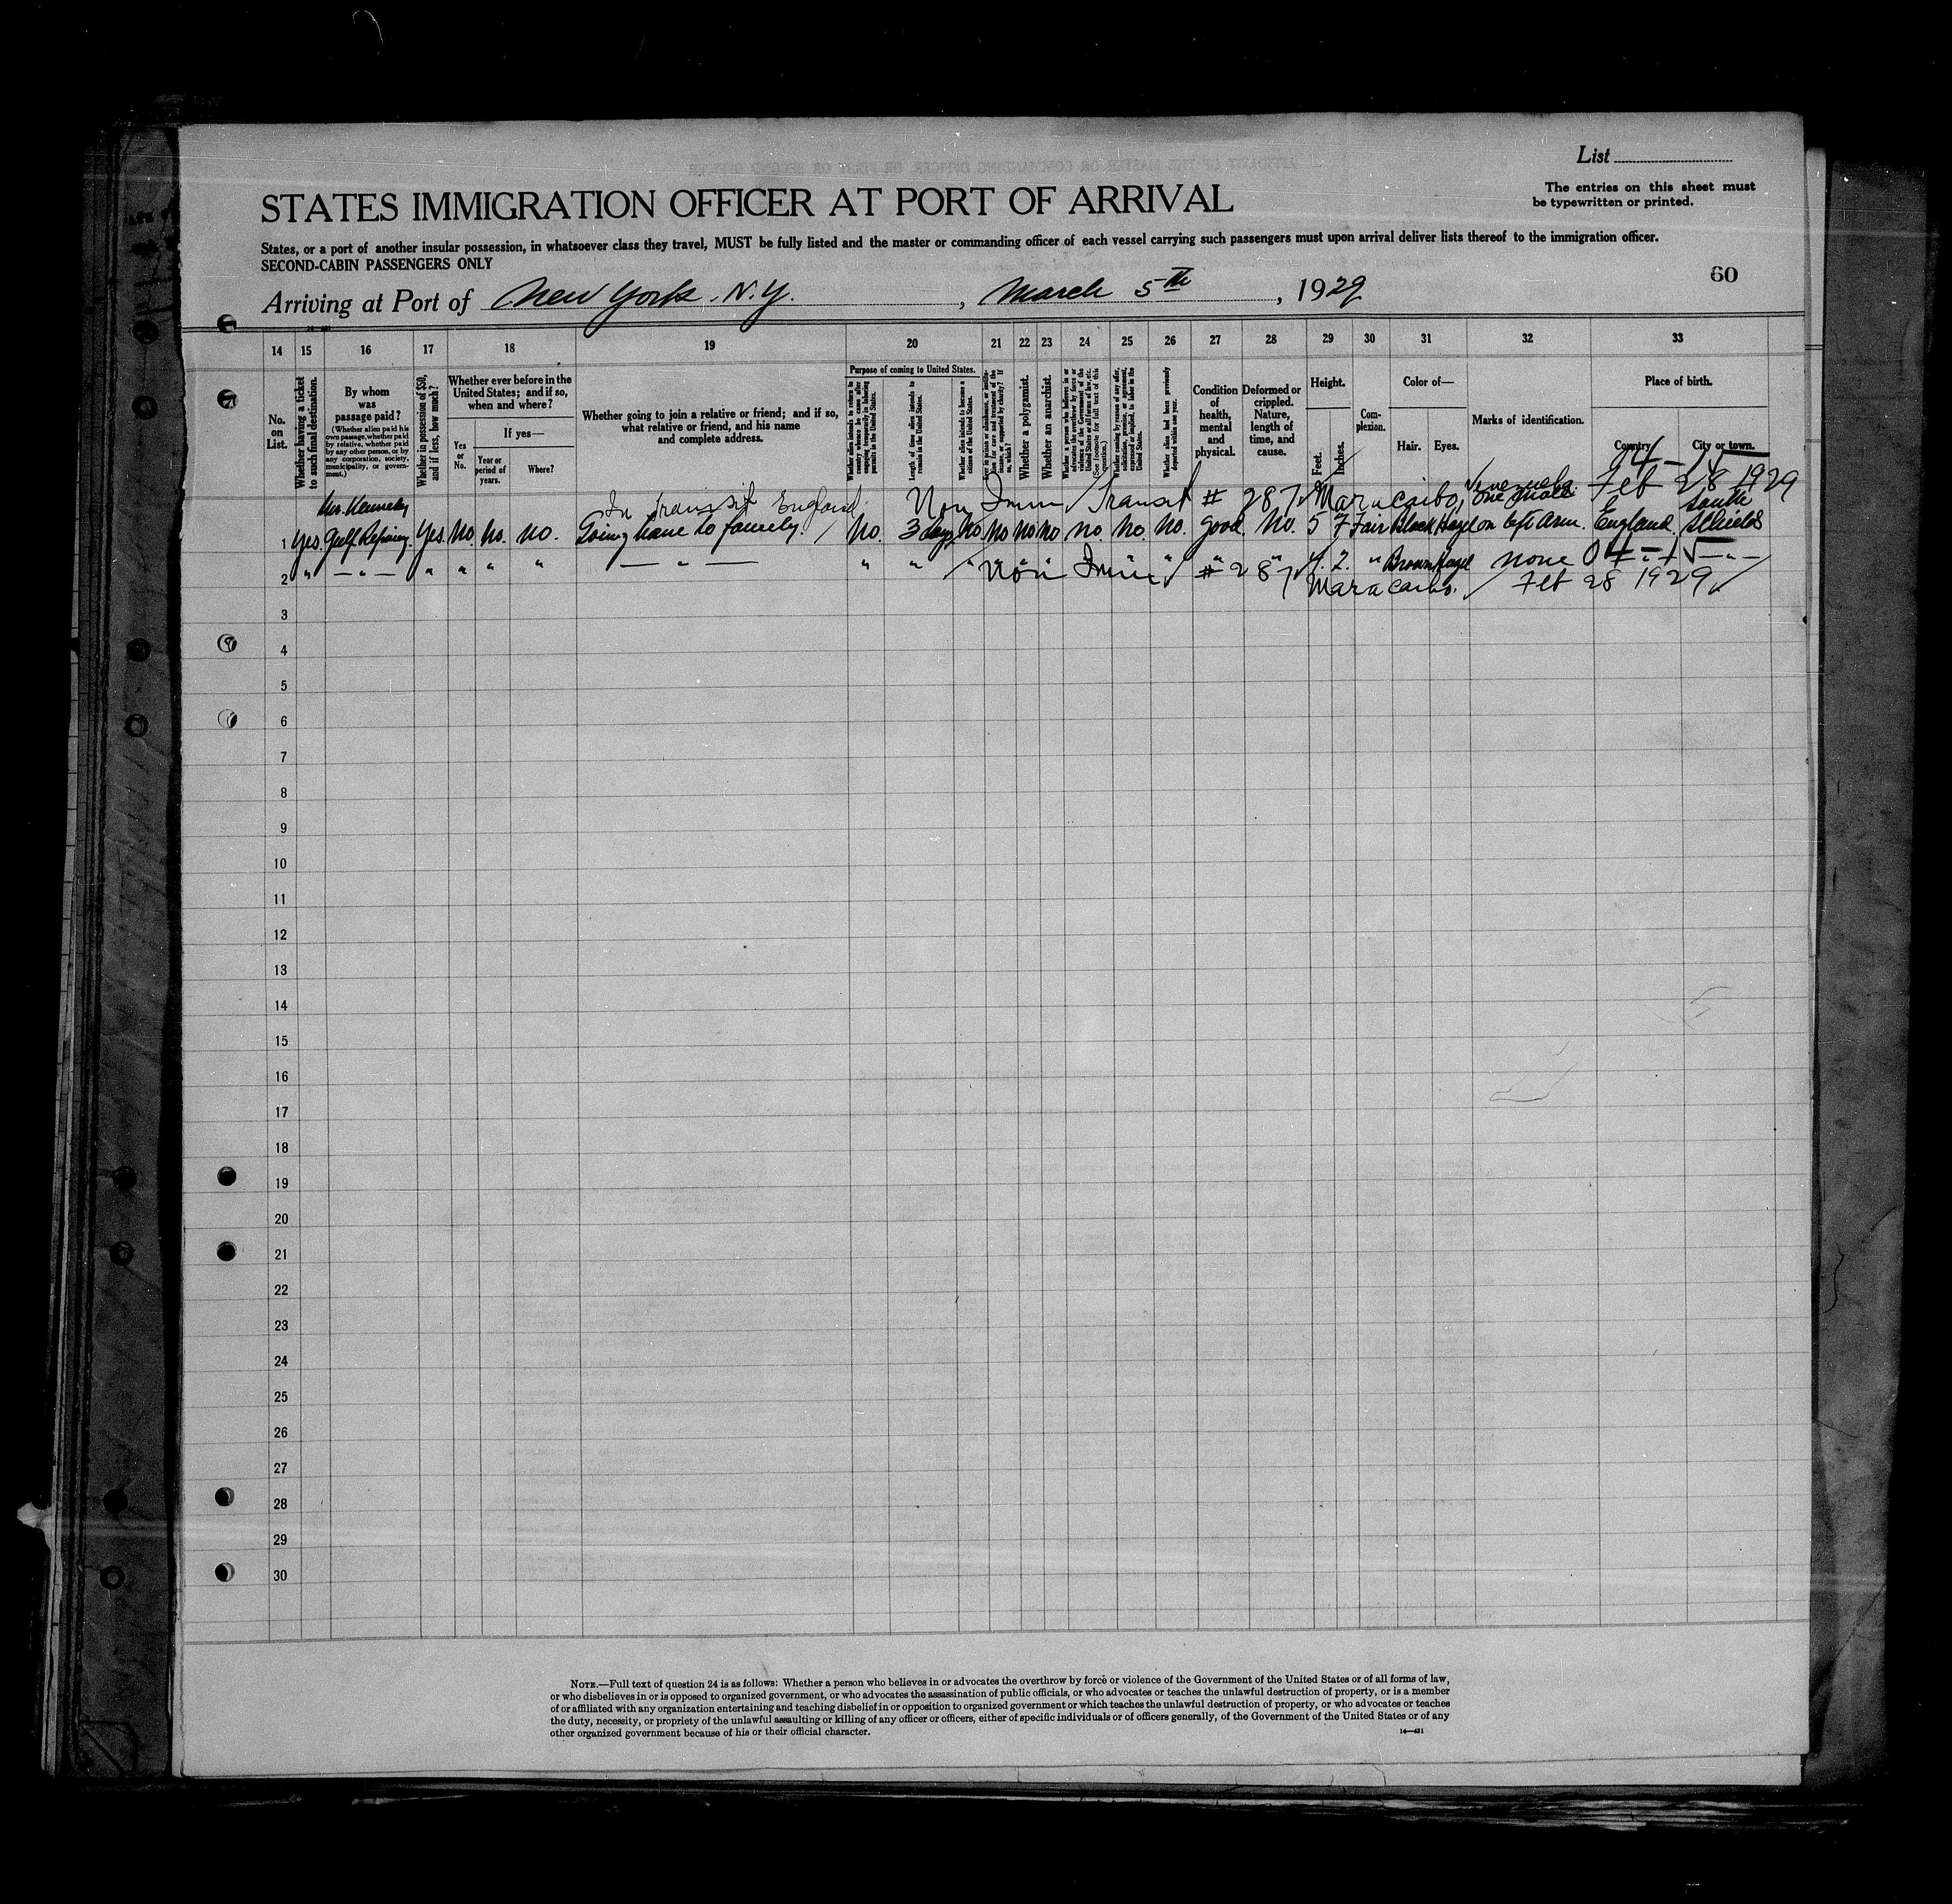 List
The entries on this sheet must
be typewritten or printed.
STATES IMMIGRATION OFFICER AT PORT OF ARRIVAL
States, or a port of another insular possession, in whatsoever class they travel, MUST be fully listed and the master or commanding officer of each vessel carrying such passengers must upon arrival deliver lists thereof to the immigration officer.
SECOND-CABIN PASSENGERS ONLY
60
Arriving at Port of New York. N.Y., March 5th, 1929
14 15 16 17 18 19 20 21 22 23 24 25 26 27 28 29 30 31 32 33
No. on List.
Whether having a ticket to such final destination.
By whom was passage paid?
(Whether alien paid his own passage, whether paid by relative, whether paid by any other person, or by any corporation, society, municipality, or government.)
Whether in possession of $50, and if less, how much?
Whether ever before in the United States; and if so, when and where?
Yes or No.
If yes—
Year or period of years.
Where?
Whether going to join a relative or friend; and if so, what relative or friend, and his name and complete address.
Purpose of coming to United States.
Length of time alien intends to remain in the United States.
Whether alien intends to become a citizen of the United States.
Whether a polygamist.
Whether an anarchist.
Condition of health, mental and physical.
Deformed or crippled. Nature, length of time, and cause.
Height.
Feet.
Inches.
Complexion.
Color of—
Hair. Eyes.
Marks of identification.
Place of birth.
Country.
City or town.
In transit England Non Imm Transit # 287 Maracaibo, Venezuela. Feb 28 1929
Mr. Kenneley one mole South
1 Yes. Gulf Refining. Yes. No. No. no. Going home to family. No. 3 days No. no no no no. no. no. good. No. 5 7 Fair Black Hazel on left arm. England Shields
2 " — " — " " " " — " — " " " Non Imm " # 287 4. 2. " Brown Hazel none
Maracaibo. Feb 28 1929
3
4
5
6
7
8
9
10
11
12
13
14
15
16
17
18
19
20
21
22
23
24
25
26
27
28
29
30
NOTE.—Full text of question 24 is as follows: Whether a person who believes in or advocates the overthrow by force or violence of the Government of the United States or of all forms of law,
or who disbelieves in or is opposed to organized government, or who advocates the assassination of public officials, or who advocates or teaches the unlawful destruction of property, or is a member
of or affiliated with any organization entertaining and teaching disbelief in or opposition to organized government or which teaches the unlawful destruction of property, or who advocates or teaches
the duty, necessity, or propriety of the unlawful assaulting or killing of any officer or officers, either of specific individuals or of officers generally, of the Government of the United States or of any
other organized government because of his or their official character.
14—431